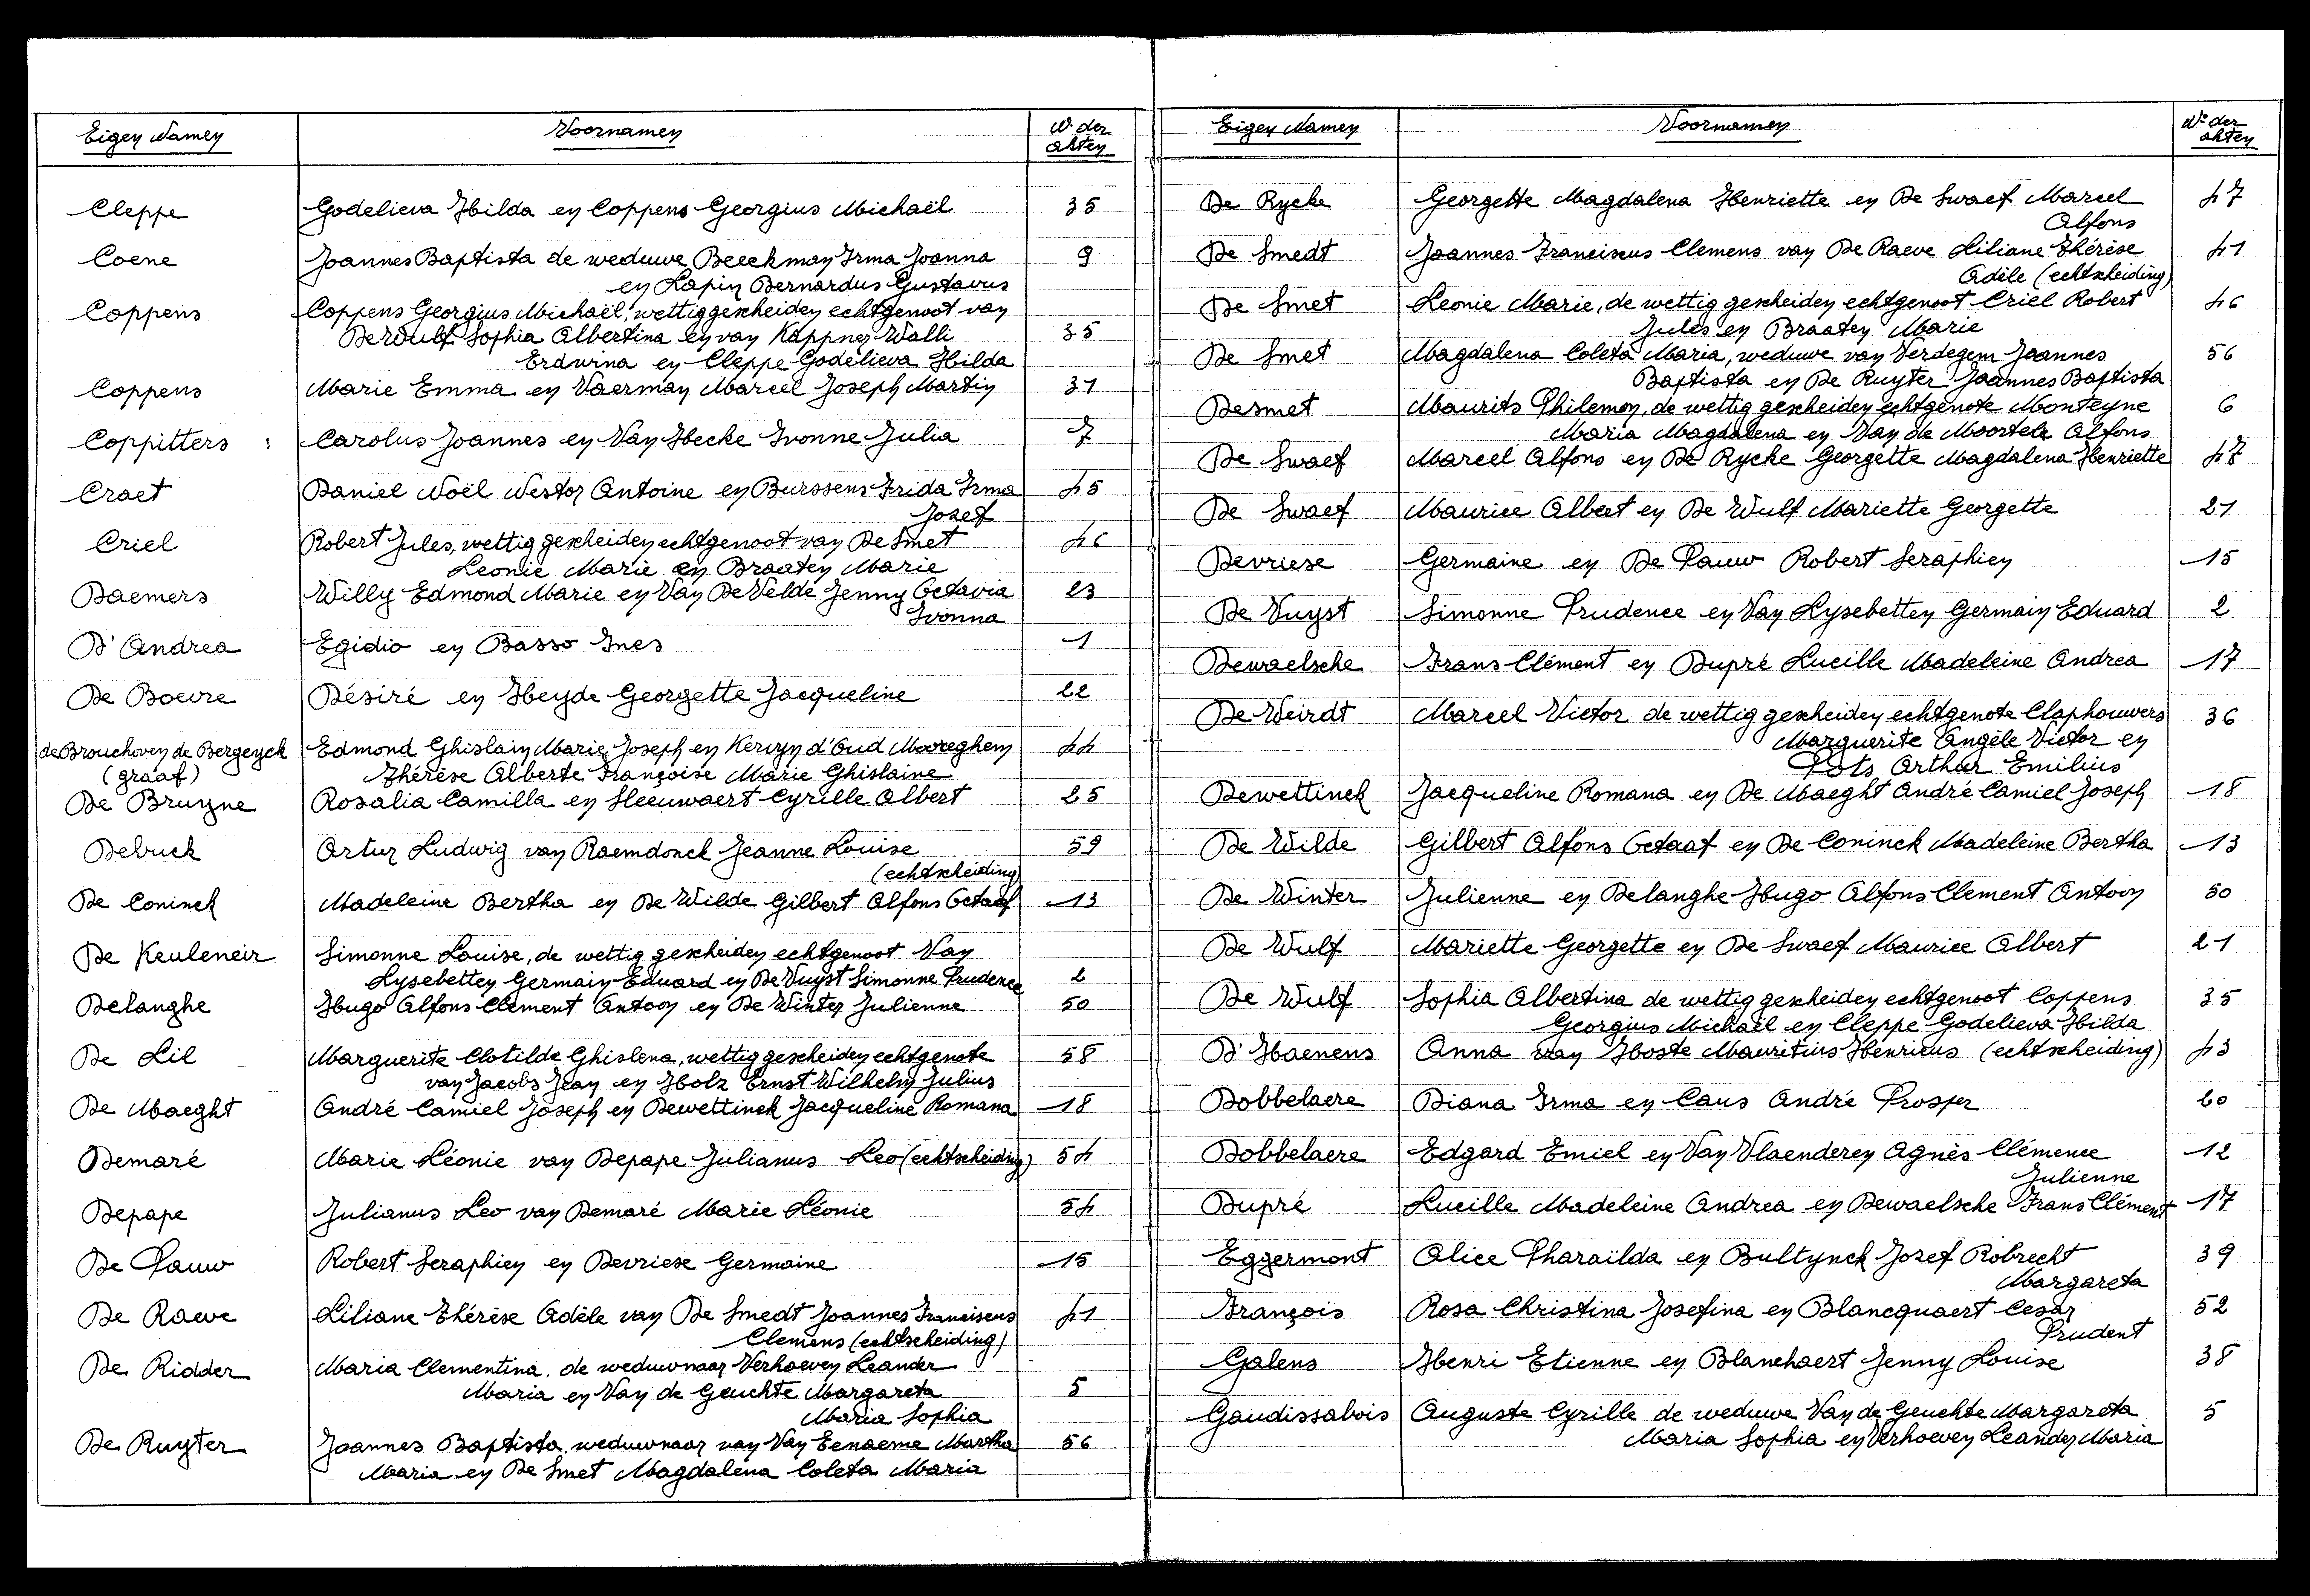 Eigen Namen Voornamen Nr der akten
Cleppe Godelieva Hilda en Coppens Georgius Michaël 35
Coene Joannes Baptista de weduwe Beeckman Irma Joanna 9
en Lapin Bernardus Gustavus
Coppens Coppens Georgius Michaël, wettig gescheiden echtgenoot van
De Wulf Sophia Albertina en van Käppner Walli 35
Erdwina en Cleppe Godelieva Hilda
Coppens Marie Emma en Vaerman Marcel Joseph Martin 31
Coppitters : Carolus Joannes en Van Hecke Ivonne Julia 7
Craet Daniel Noël Nestor Antoine en Burssens Frida Irma 45
Jozef
Criel Robert Jules, wettig gescheiden echtgenoot van De Smet 46
Leonie Marie en Braaten Marie
Daemers Willy Edmond Marie en Van De Velde Jenny Octavia 23
Ivonna
D'Andrea Egidio en Basso Ines 1
De Boevre Désiré en Heyde Georgette Jacqueline 22
de Brouchoven de Bergeyck Edmond Ghislain Marie Joseph en Kervyn d'Oud Mooreghem 44
(graaf) Thérèse Alberte Françoise Marie Ghislaine
De Bruyne Rosalia Camilla en Sleeuwaert Cyrille Albert 25
Debuck Artur Ludwig van Raemdonck Jeanne Louise 59
(echtscheiding)
De Coninck Madeleine Bertha en De Wilde Gilbert Alfons Octaaf 13
De Keuleneir Simonne Louise, de wettig gescheiden echtgenoot Van
Lysebetten Germain Eduard en De Vuyst Simonne Prudence 2
Delanghe Hugo Alfons Clement Antoon en De Winter Julienne 50
De Lil Marguerite Clotilde Ghislena, wettig gescheiden echtgenote 58
van Jacobs Jean en Holz Ernst Wilhelm Julius
De Maeght André Camiel Joseph en Dewettinck Jacqueline Romana 18
Demaré Marie Léonie van Depape Julianus Leo (echtscheiding) 54
Depape Julianus Leo van Demaré Marie Léonie 54
De Pauw Robert Seraphien en Devriese Germaine 15
De Raeve Liliane Thérèse Adèle van De Smedt Joannes Franciscus 41
Clemens (echtscheiding)
De Ridder Maria Clementina, de weduwnaar Verhoeven Leander
Maria en Van de Geuchte Margareta 5
Maria Sophia
De Ruyter Joannes Baptista, weduwnaar van Van Eenaeme Martha 56
Maria en De Smet Magdalena Coleta Maria
Eigen Namen Voornamen Nr der akten
De Rycke Georgette Magdalena Henriette en De Swaef Marcel 47
Alfons
De Smedt Joannes Franciscus Clemens van De Raeve Liliane Thérèse 41
Adèle (echtscheiding)
De Smet Leonie Marie, de wettig gescheiden echtgenoot Criel Robert 46
Jules en Braaten Marie
De Smet Magdalena Coleta Maria, weduwe van Verdegem Joannes 56
Baptista en De Ruyter Joannes Baptista
Desmet Maurits Philemon, de wettig gescheiden echtgenote Monteyne 6
Maria Magdalena en Van de Moortele Alfons
De Swaef Marcel Alfons en De Rycke Georgette Magdalena Henriette 47
De Swaef Maurice Albert en De Wulf Mariette Georgette 21
Devriese Germaine en De Pauw Robert Seraphien 15
De Vuyst Simonne Prudence en Van Lysebetten Germain Eduard 2
Dewaelsche Frans Clément en Dupré Lucille Madeleine Andrea 17
De Weirdt Marcel Victor de wettig gescheiden echtgenote Claphouwers 36
Marguerite Angèle Victor en
Pots Arthur Emilius
Dewettinck Jacqueline Romana en De Maeght André Camiel Joseph 18
De Wilde Gilbert Alfons Octaaf en De Coninck Madeleine Bertha 13
De Winter Julienne en Delanghe Hugo Alfons Clement Antoon 50
De Wulf Mariette Georgette en De Swaef Maurice Albert 21
De Wulf Sophia Albertina de wettig gescheiden echtgenoot Coppens 35
Georgius Michaël en Cleppe Godelieva Hilda
D'Haenens Anna van Hoste Mauritius Henricus (echtscheiding) 43
Dobbelaere Diana Irma en Caus André Prosper 60
Dobbelaere Edgard Emiel en Van Vlaenderen Agnès Clémence 12
Julienne
Dupré Lucille Madeleine Andrea en Dewaelsche Frans Clément 17
Eggermont Alice Pharaïlda en Bultynck Jozef Robrecht 39
Margareta
François Rosa Christina Josefina en Blancquaert Cesar 52
Prudent
Galens Henri Etienne en Blanchaert Jenny Louise 38
Gaudissabois Auguste Cyrille de weduwe Van de Geuchte Margareta 5
Maria Sophia en Verhoeven Leander Maria